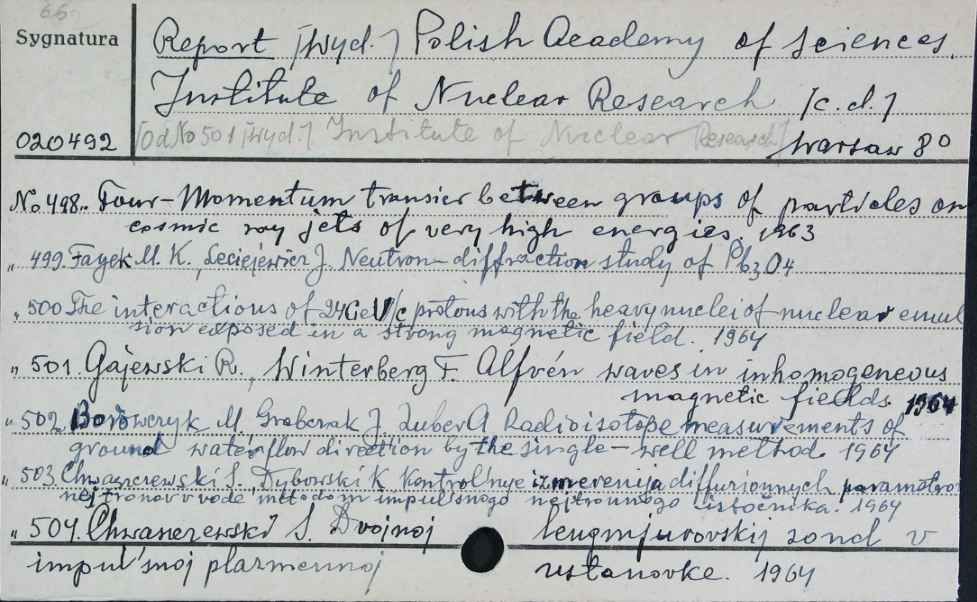 66
Sygnatura
Report [Wyd.] Polish Academy of Sciences.
Institute of Nuclear Research [c.d.]
020492 [Od No 501 [Wyd.] Institute of Nuclear Research] Warsaw 80
No 498. Four-Momentum transier between groups of particles on
cosmic ray jets of very high energies. 1963
" 499. Fayek M. K., Leciejewicz J. Neutron-diffraction study of Pb3O4
" 500 The interactions of 24GeV/c protons with the heavy nuclei of nuclear emul
sion exposed in a strong magnetic field. 1964
" 501. Gajewski R., Winterberg F. Alfvén waves in inhomogeneous
magnetic fields 1964
" 502. Borowczyk M. Grabczak J. Zuber A Radioisotope measurements of
ground waterflow direction by the single-well method. 1964
" 503. Chwaszczewski S. Dyborski K. Kontrol'nye izmerenija diffuzionnych parametrov
nejtronov v vode metodom impul'snogo nejtronnogo istočnika. 1964
" 504. Chwaszczewski S. Dvojnoj lengmjurovskij zond v
impul'snoj plazmennoj ustanovke. 1964